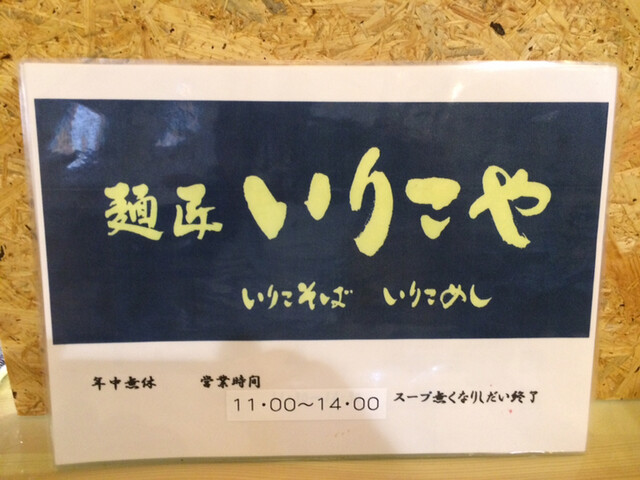 麺匠 いりこや
いりこそば いりこめし
年中無休 営業時間 11・00〜14・00 スープ無くなりしだい終了